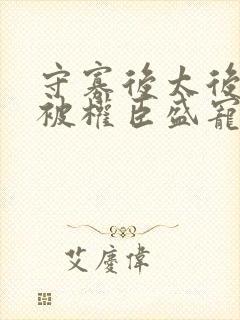 守寡後太後
被權臣盛寵
艾慶偉